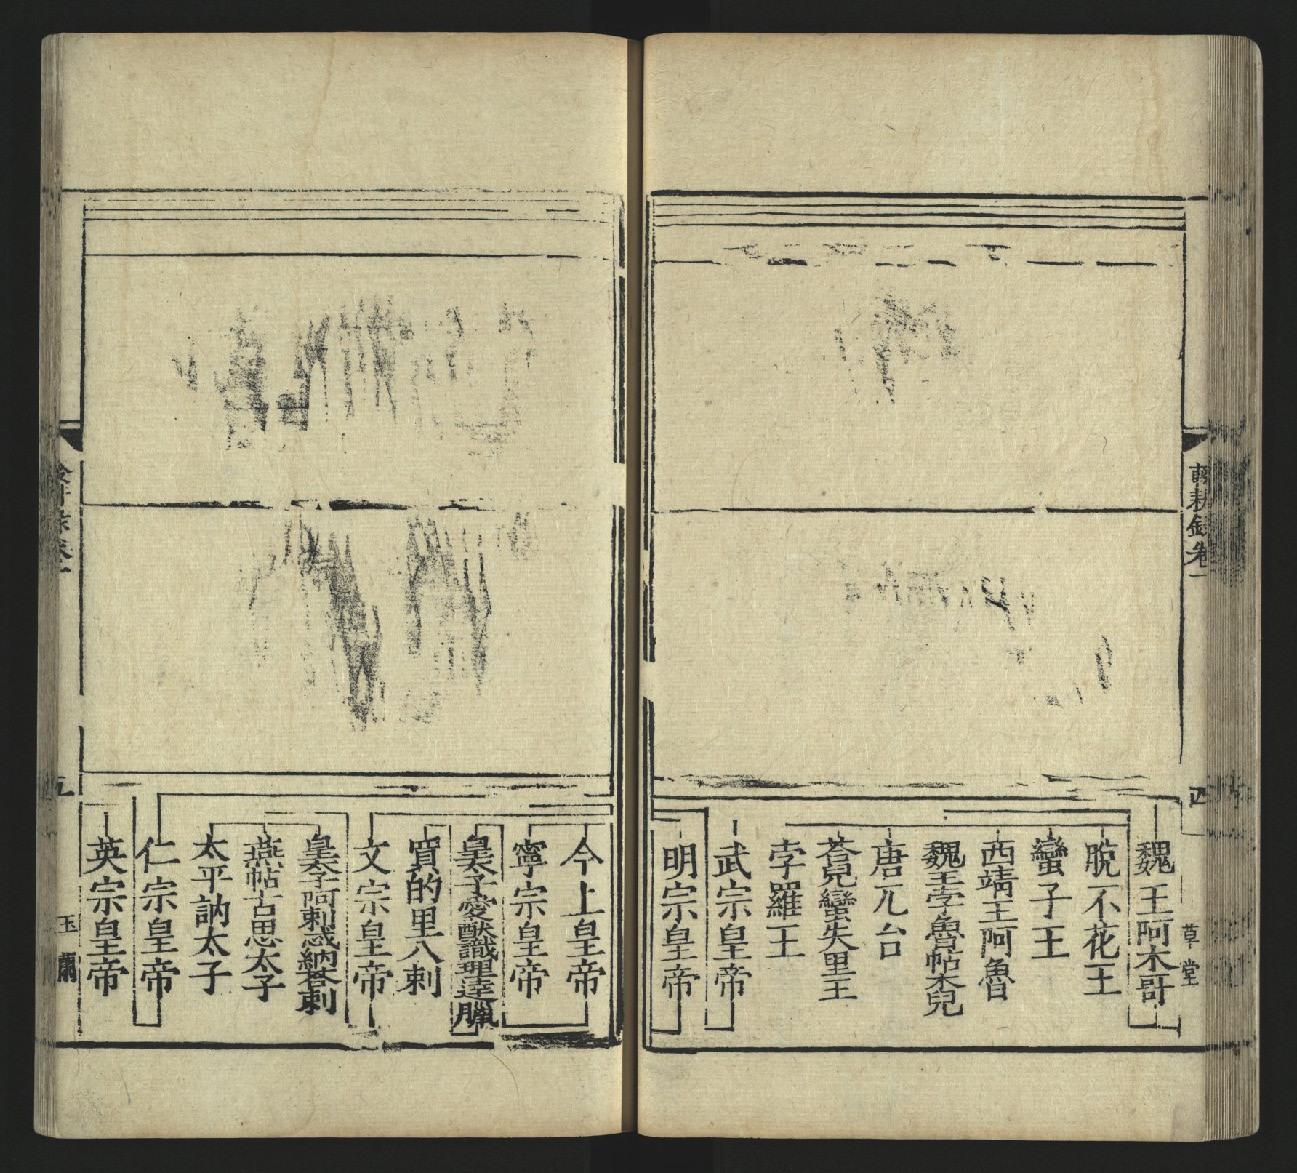 輟耕錄卷一
四
草堂
魏王阿木哥
脫不花王
蠻子王
西靖王阿魯
魏王孛魯帖木兒
唐兀台
荅兒蠻失里王
孛羅王
武宗皇帝
明宗皇帝
今上皇帝
寧宗皇帝
皇太子愛猷識理達臘
寳的里八剌
文宗皇帝
皇太子阿剌忒納荅剌
燕帖古思太子
太平訥太子
仁宗皇帝
英宗皇帝
五
玉蘭